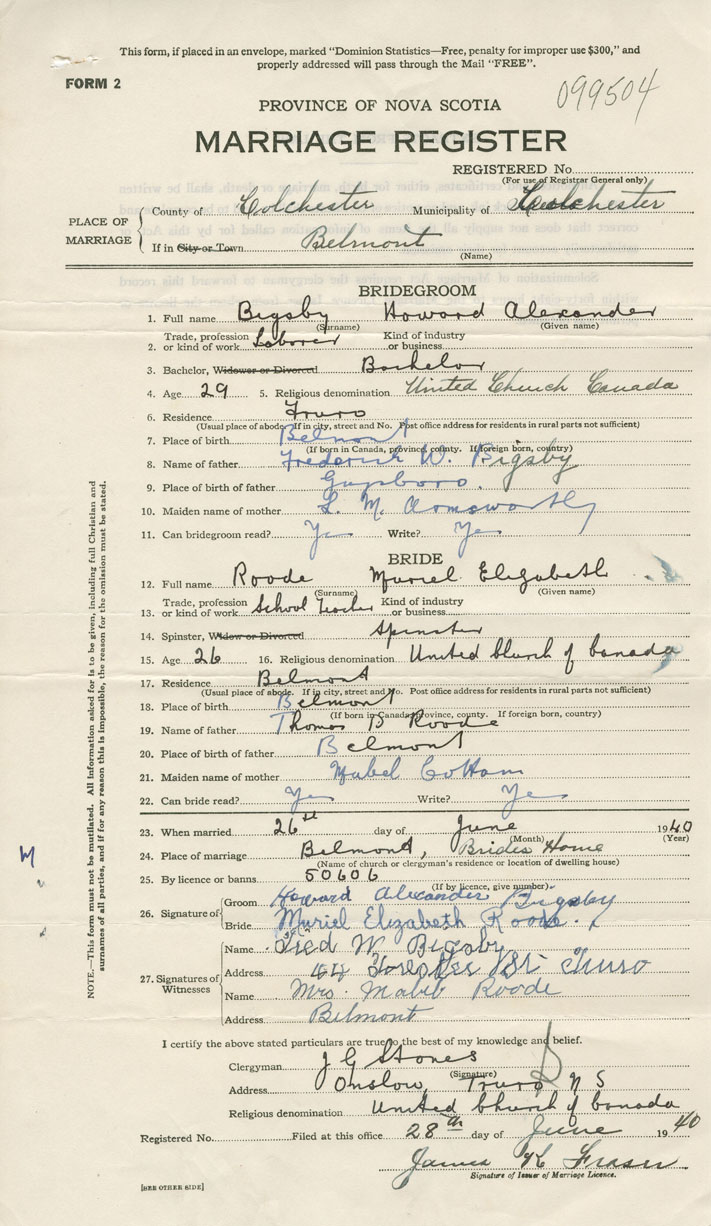 This form, if placed in an envelope, marked "Dominion Statistics—Free, penalty for improper use $300," and
properly addressed will pass through the Mail "FREE".
FORM 2
099504
PROVINCE OF NOVA SCOTIA
MARRIAGE REGISTER
REGISTERED No.
(For use of Registrar General only)
PLACE OF MARRIAGE
County of Colchester Municipality of Colchester
If in City or Town Belmont
(Name)
BRIDEGROOM
1. Full name Bigsby Howard Alexander
(Surname) (Given name)
2. Trade, profession or kind of work Laborer Kind of industry or business
3. Bachelor, Widower or Divorced Bachelor
4. Age 29 5. Religious denomination United Church Canada
6. Residence Truro
(Usual place of abode. If in city, street and No. Post office address for residents in rural parts not sufficient)
7. Place of birth Belmont
(If born in Canada, province, county. If foreign born, country)
8. Name of father Frederick W. Bigsby
9. Place of birth of father Guysboro.
10. Maiden name of mother L. M. Armsworthy
11. Can bridegroom read? Yes Write? Yes
BRIDE
12. Full name Roode Muriel Elizabeth
(Surname) (Given name)
13. Trade, profession or kind of work School Teacher Kind of industry or business
14. Spinster, Widow or Divorced Spinster
15. Age 26 16. Religious denomination United Church of Canada
17. Residence Belmont
(Usual place of abode. If in city, street and No. Post office address for residents in rural parts not sufficient)
18. Place of birth Belmont
(If born in Canada, province, county. If foreign born, country)
19. Name of father Thomas B Roode
20. Place of birth of father Belmont
21. Maiden name of mother Mabel Cottam
22. Can bride read? Yes Write? Yes
23. When married 26th day of June 1940
(Month) (Year)
24. Place of marriage Belmont, Brides Home
(Name of church or clergyman's residence or location of dwelling house)
25. By licence or banns 50606
(If by licence, give number)
26. Signature of Groom Howard Alexander Bigsby
Bride Muriel Elizabeth Roode.
27. Signatures of Witnesses
Name Fred W. Bigsby
Address 44 St Truro
Name Mrs. Roode
Address Belmont
I certify the above stated particulars are true to the best of my knowledge and belief.
Clergyman J G Stones
(Signature)
Address Onslow, Truro N S
Religious denomination United Church of Canada
Registered No. Filed at this office 28th day of June 1940
James K Fraser
Signature of Issuer of Marriage Licence.
[SEE OTHER SIDE]
NOTE.—This form must not be mutilated. All information asked for is to be given, including full Christian and
surnames of all parties, and if for any reason this is impossible, the reason for the omission must be stated.
M